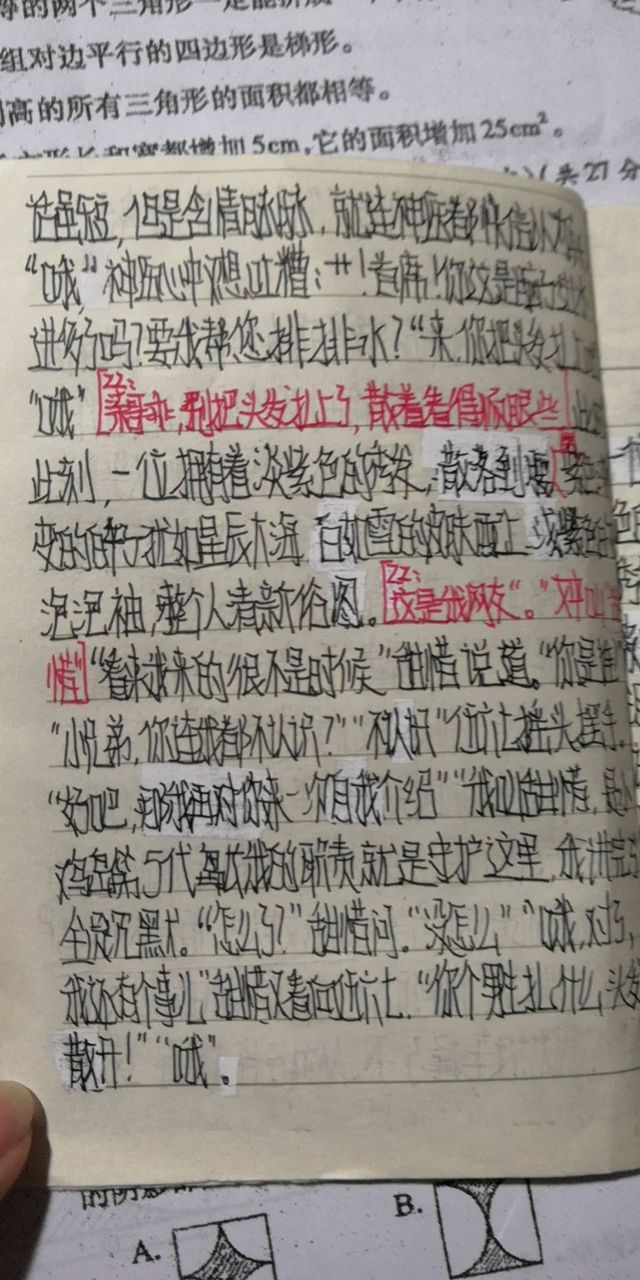 的两个三角形一定能拼成
组对边平行的四边形是梯形。
高的所有三角形的面积都相等。
形长和宽都增加5cm,它的面积增加25cm²。
(共27分
话虽短,但是含情脉脉,就连神医都
“哦”神医心中不想吐槽:艹!首席!你这是脑子
进多了吗?要我帮您排排水?“来,你把头发扎上
“哦”[22: 别把头发扎上了,散着看得顺眼些 此
此刻,一位拥有着淡紫色的秀发,散落到腰
变的眸子犹如星辰大海,白如雪的皮肤配上
泡泡袖,整个人清新俗图。[22:这是我网友“。”
惜]“看来我来的很不是时候”甜惜说道。“你是谁
“小兄弟,你连我都不认识?”“不认识”伍六七摇头
“好吧,那我再对你来一次自我介绍”“我叫甜惜,是
鸡岛第5代 我的职责就是守护这里,我讲完
全设沉默。“怎么了?”甜惜问。“没怎么”“哦,对了,
我还有个事儿”甜惜又看向伍六七.“你个男生扎什么头发
散开!”“哦”。
的阴影
A.
B.